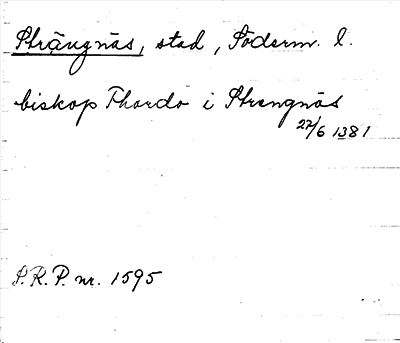 Strängnäs, stad, Söderm. l.
biskop Thordo i Strengnäs
22/6 1381
S.R.P. nr. 1595